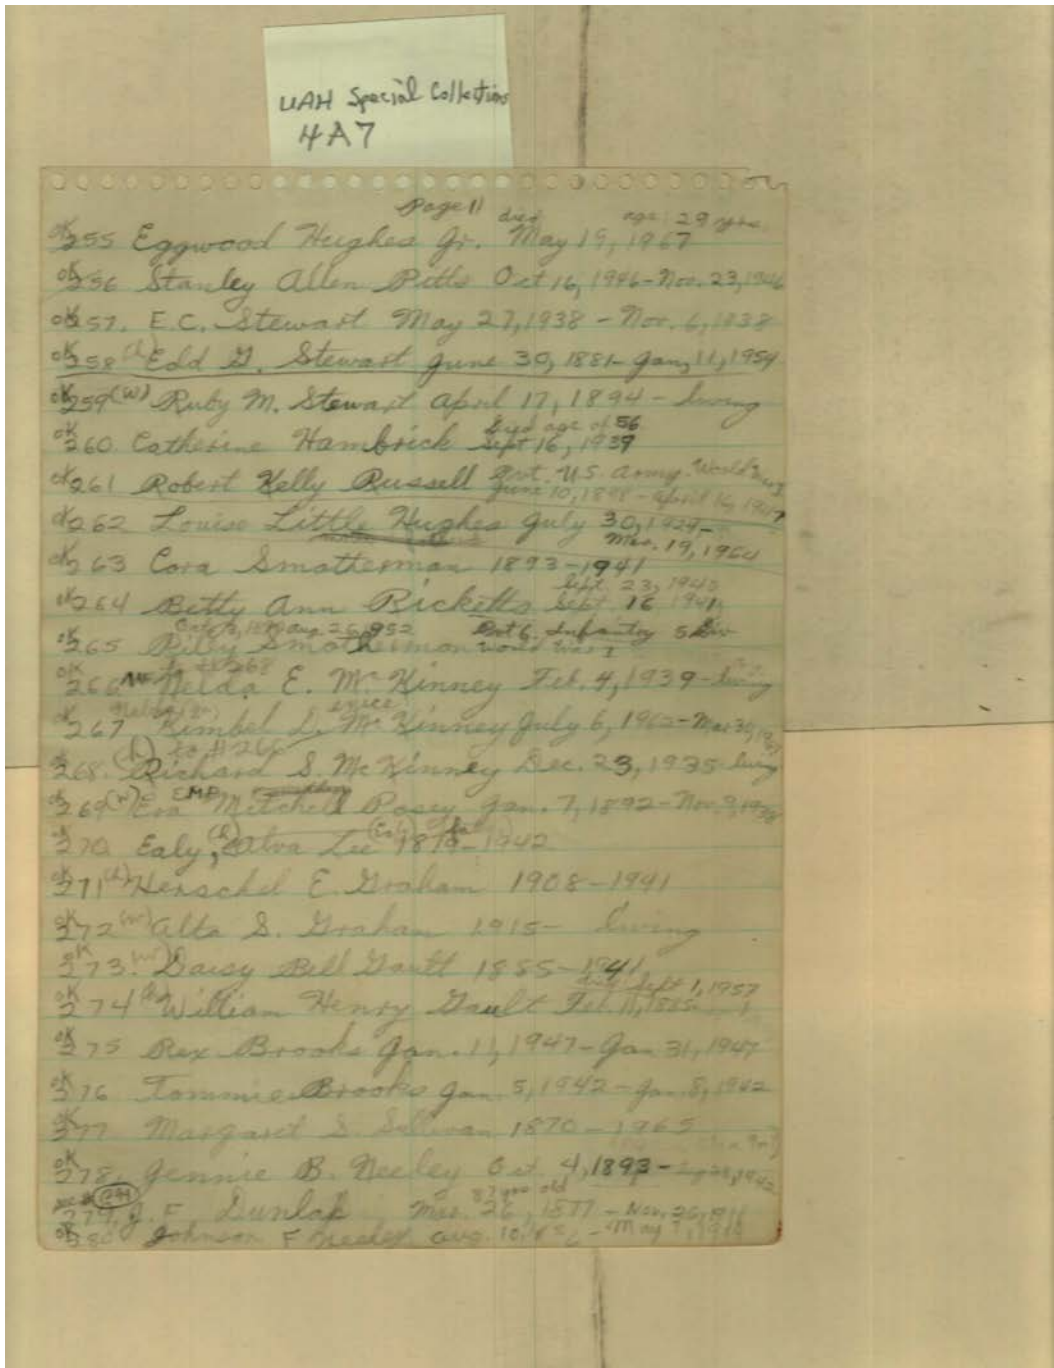 UAH Special Collections
4A7
Page 11
died age 29 yrs.
ok 255 Eggwood Hughes Jr. May 19, 1967
ok 256 Stanley Allen Pitts Oct 16, 1946 - Nov. 23, 1946
ok 257. E.C. Stewart May 27, 1938 - Nov. 6, 1938
ok 258 (h) Edd G. Stewart June 30, 1881 - Jan, 11, 1954
ok 259 (w) Ruby M. Stewart April 17, 1894 - living
died age of 56
ok 260. Catherine Hambrick Sept 16, 1939
ok 261 Robert Kelly Russell Pvt. U.S. Army World War
June 10, 1898 - April 16, 1947
ok 262 Louise Little Hughes July 30, 1924 -
Mar. 19, 1964
ok 263 Cora Smotherman 1893 - 1941
Sept. 23, 1940
ok 264 Betty Ann Ricketts Sept. 16 1941
Aug. 26, 1952 Pvt 6. Infantry 5 Div
ok 265 Riley Smotherman World War I
to #268
ok 266 Nelda E. McKinney Feb. 4, 1939 - living
ok 267 Kimbel D. McKinney July 6, 1962 - Mar 30,
(h) to #266
ok 268. Richard S. McKinney Dec. 23, 1935 living
EMP
ok 269 (w) Eva Mitchell Posey Jan. 7, 1892 - Nov. 9, 1938
ok 270 Ealy, (h) Alva Lee 1879 - 1942
ok 271 (h) Herschel E. Graham 1908 - 1941
ok 272 (w) Alta S. Graham 1915 - living
ok 273. (w) Daisy Bell Gault 1885 - 1941
died Sept 1, 1957
ok 274 (h) William Henry Gault Feb. 11, 1885
ok 275 Rex Brooks Jan. 11, 1947 - Jan 31, 1947
ok 276 Tommie Brooks Jan. 5, 1942 - Jan. 8, 1942
ok 277 Margaret S. Sullivan 1870 - 1965
ok 278, Jennie B. Neeley Oct 4, 1893 -
87 yrs old
279, J. F. Dunlap Mar. 26, 1877 - Nov. 26, 1911
ok 280 Johnson F Neeley Aug. 10, - May 7, 1910